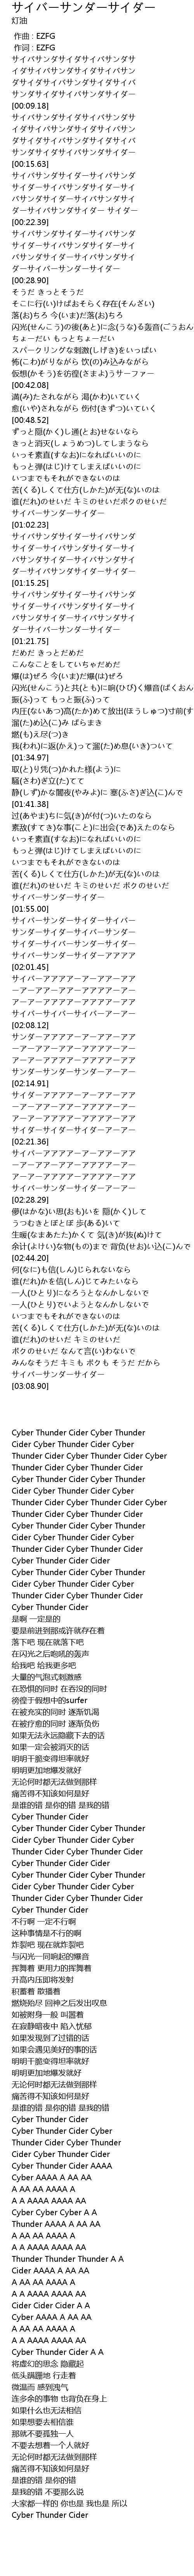 サイバーサンダーサイダー
灯油
作曲 : EZFG
作词 : EZFG
サイバサンダサイダサイバサンダサ
イダサイバサンダサイダサイバサン
ダサイダサイバサンダサイダサイバ
サンダサイダサイバサンダサイダー
[00:09.18]
サイバサンダサイダサイバサンダサ
イダサイバサンダサイダサイバサン
ダサイダサイバサンダサイダサイバ
サンダサイダサイバサンダサイダー
[00:15.63]
サイバサンダサイダーサイバサンダ
サイダーサイバサンダサイダーサイ
バサンダサイダーサイバサンダサイ
ダーサイバサンダサイダー サイダー
[00:22.39]
サイバサンダサイダーサイバサンダ
サイダーサイバサンダサイダーサイ
バサンダサイダーサイバサンダサイ
ダーサイバーサンダーサイダー
[00:28.90]
そうだ きっとそうだ
そこに行(い)けばおそらく存在(そんざい)
落(お)ちろ 今(いま)だ落(お)ちろ
閃光(せんこう)の後(あと)に念(うな)る轟音(ごうおん
ちょーだい もっとちょーだい
スパークリングな刺激(しげき)をいっぱい
怖(こわ)がりながら 飲(の)み込みながら
仮想(かそう)を彷徨(さまよ)うサーファー
[00:42.08]
満(み)たされながら 渇(かわ)いていく
愈(いや)されながら 伤付(きずつ)いていく
[00:48.52]
ずっと隠(かく)し通(とお)せないなら
きっと消灭(しょうめつ)してしまうなら
いっそ素直(すなお)になればいいのに
もっと弾(はじ)けてしまえばいいのに
いつまでもそれができないのは
苦(くる)しくて仕方(しかた)が无(な)いのは
誰(だれ)のせいだ キミのせいだボクのせいだ
サイバーサンダーサイダー
[01:02.23]
サイバサンダサイダーサイバサンダ
サイダーサイバサンダサイダーサイ
バサンダサイダーサイバサンダサイ
ダーサイバサンダサイダーサイダー
[01:15.25]
サイバサンダサイダーサイバサンダ
サイダーサイバサンダサイダーサイ
バサンダサイダーサイバサンダサイ
ダーサイバーサンダーサイダー
[01:21.75]
だめだ きっとだめだ
こんなことをしていちゃだめだ
爆(は)ぜろ 今(いま)だ爆(は)ぜろ
閃光(せんこう)と共(とも)に响(ひび)く爆音(ばくおん
振(ふ)って もっと振(ふ)って
内圧(ないあつ)高(たか)めて放出(ほうしゅつ)寸前(す
溜(た)め込(こ)み ばらまき
燃(も)え尽(つ)き
我(われ)に返(かえ)って溜(た)め息(いき)ついて
[01:34.97]
取(と)り凭(つ)かれた様(よう)に
騒(さわ)ぎ立(た)てて
静(しず)かな闇夜(やみよ)に 塞(ふさ)ぎ込(こ)んで
[01:41.38]
过(あやま)ちに気(き)が付(つ)いたのなら
素敌(すてき)な事(こと)に出会(であ)えたのなら
いっそ素直(すなお)になればいいのに
もっと弾(はじ)けてしまえばいいのに
いつまでもそれができないのは
苦(くる)しくて仕方(しかた)が无(な)いのは
誰(だれ)のせいだ キミのせいだ ボクのせいだ
サイバーサンダーサイダー
[01:55.00]
サイバーサンダーサイダーサイバー
サンダーサイダーサイバーサンダー
サイダーサイバーサンダーサイダー
サイバーサンダーサイダーアアアア
[02:01.45]
サイバーアアアアーアーアアーアア
ーアーアアーアアーアアアアーアー
アーアアーアアアアーアアアアーアア
サイバーサイバーサイバーアーアー
[02:08.12]
サンダーアアアアーアーアアーアア
ーアーアアーアアーアアアアーアー
アーアアーアアアアーアアアアーアア
サンダーサンダーサンダーアーアー
[02:14.91]
サイダーアアアアーアーアアーアア
ーアーアアーアアーアアアアーアー
アーアアーアアアアーアアアアーアア
サイダーサイダーサイダーアーアー
[02:21.36]
サイバーアアアアーアーアアーアア
ーアーアアーアアーアアアアーアー
アーアアーアアアアーアアアアーアア
サイバーサンダーサイダーアーアー
[02:28.29]
儚(はかな)い思(おも)いを 隠(かく)して
うつむきとぼとぼ 歩(ある)いて
生暖(なまあたた)かくて 気(き)が抜(ぬ)けて
余计(よけい)な物(もの)まで 背负(せお)い込(こ)んで
[02:44.20]
何(なに)も信(しん)じられないなら
谁(だれ)かを信(しん)じてみたいなら
一人(ひとり)になろうとなんかしないで
一人(ひとり)でいようとなんかしないで
いつまでもそれができないのは
苦(くる)しくて仕方(しかた)が无(な)いのは
誰(だれ)のせいだ キミのせいだ
ボクのせいだ なんて言(い)わないで
みんなそうだ キミも ボクも そうだ だから
サイバーサンダーサイダー
[03:08.90]
Cyber Thunder Cider Cyber Thunder
Cider Cyber Thunder Cider Cyber
Thunder Cider Cyber Thunder Cider Cyber
Thunder Cider Cyber Thunder Cider
Cyber Thunder Cider Cyber Thunder
Cider Cyber Thunder Cider Cyber
Thunder Cider Cyber Thunder Cider Cyber
Thunder Cider Cyber Thunder Cider
Cyber Thunder Cider Cyber Thunder
Cider Cyber Thunder Cider Cyber
Thunder Cider Cyber Thunder Cider
Cyber Thunder Cider Cider
Cyber Thunder Cider Cyber Thunder
Cider Cyber Thunder Cider Cyber
Thunder Cider Cyber Thunder Cider
Cyber Thunder Cider
是啊 一定是的
要是前进到那或许就存在着
落下吧 现在就落下吧
在闪光之后咆吼的轰声
给我吧 给我更多吧
大量的气泡式刺激感
在恐惧的同时 在吞没的同时
徬徨于假想中的surfer
在被充实的同时 逐渐饥渴
在被疗愈的同时 逐渐负伤
如果无法永远隐藏下去的话
如果一定会被消灭的话
明明干脆变得坦率就好
明明更加地爆发就好
无论何时都无法做到那样
痛苦得不知该如何是好
是谁的错 是你的错 是我的错
Cyber Thunder Cider
Cyber Thunder Cider Cyber Thunder
Cider Cyber Thunder Cider Cyber
Thunder Cider Cyber Thunder Cider
Cyber Thunder Cider Cider
Cyber Thunder Cider Cyber Thunder
Cider Cyber Thunder Cider Cyber
Thunder Cider Cyber Thunder Cider
Cyber Thunder Cider
不行啊 一定不行啊
这种事情是不行的啊
炸裂吧 现在就炸裂吧
与闪光一同响起的爆音
挥舞着 更用力的挥舞着
升高内压即将发射
积蓄着 散播着
燃烧殆尽 回神之后发出叹息
如被附身一般 叫嚣着
在寂静暗夜中 陷入忧郁
如果发现到了过错的话
如果会遇见美好的事的话
明明干脆变得坦率就好
明明更加地爆发就好
无论何时都无法做到那样
痛苦得不知该如何是好
是谁的错 是你的错 是我的错
Cyber Thunder Cider
Cyber Thunder Cider Cyber
Thunder Cider Cyber Thunder
Cider Cyber Thunder Cider
Cyber Thunder Cider AAAA
Cyber AAAA A AA AA
A AA AA AAAA A
A A AAAA AAAA AA
Cyber Cyber Cyber A A
Thunder AAAA A AA AA
A AA AA AAAA A
A A AAAA AAAA AA
Thunder Thunder Thunder A A
Cider AAAA A AA AA
A AA AA AAAA A
A A AAAA AAAA AA
Cider Cider Cider A A
Cyber AAAA A AA AA
A AA AA AAAA A
A A AAAA AAAA AA
Cyber Thunder Cider A A
将虚幻的思念 隐藏起
低头蹒跚地 行走着
微温而 感到洩气
连多余的事物 也背负在身上
如果什么也无法相信
如果想要去相信谁
那就不要孤独一人
不要去想着一个人就好
无论何时都无法做到那样
痛苦得不知该如何是好
是谁的错 是你的错
是我的错 不要那么说
大家都一样的 你也是 我也是 所以
Cyber Thunder Cider